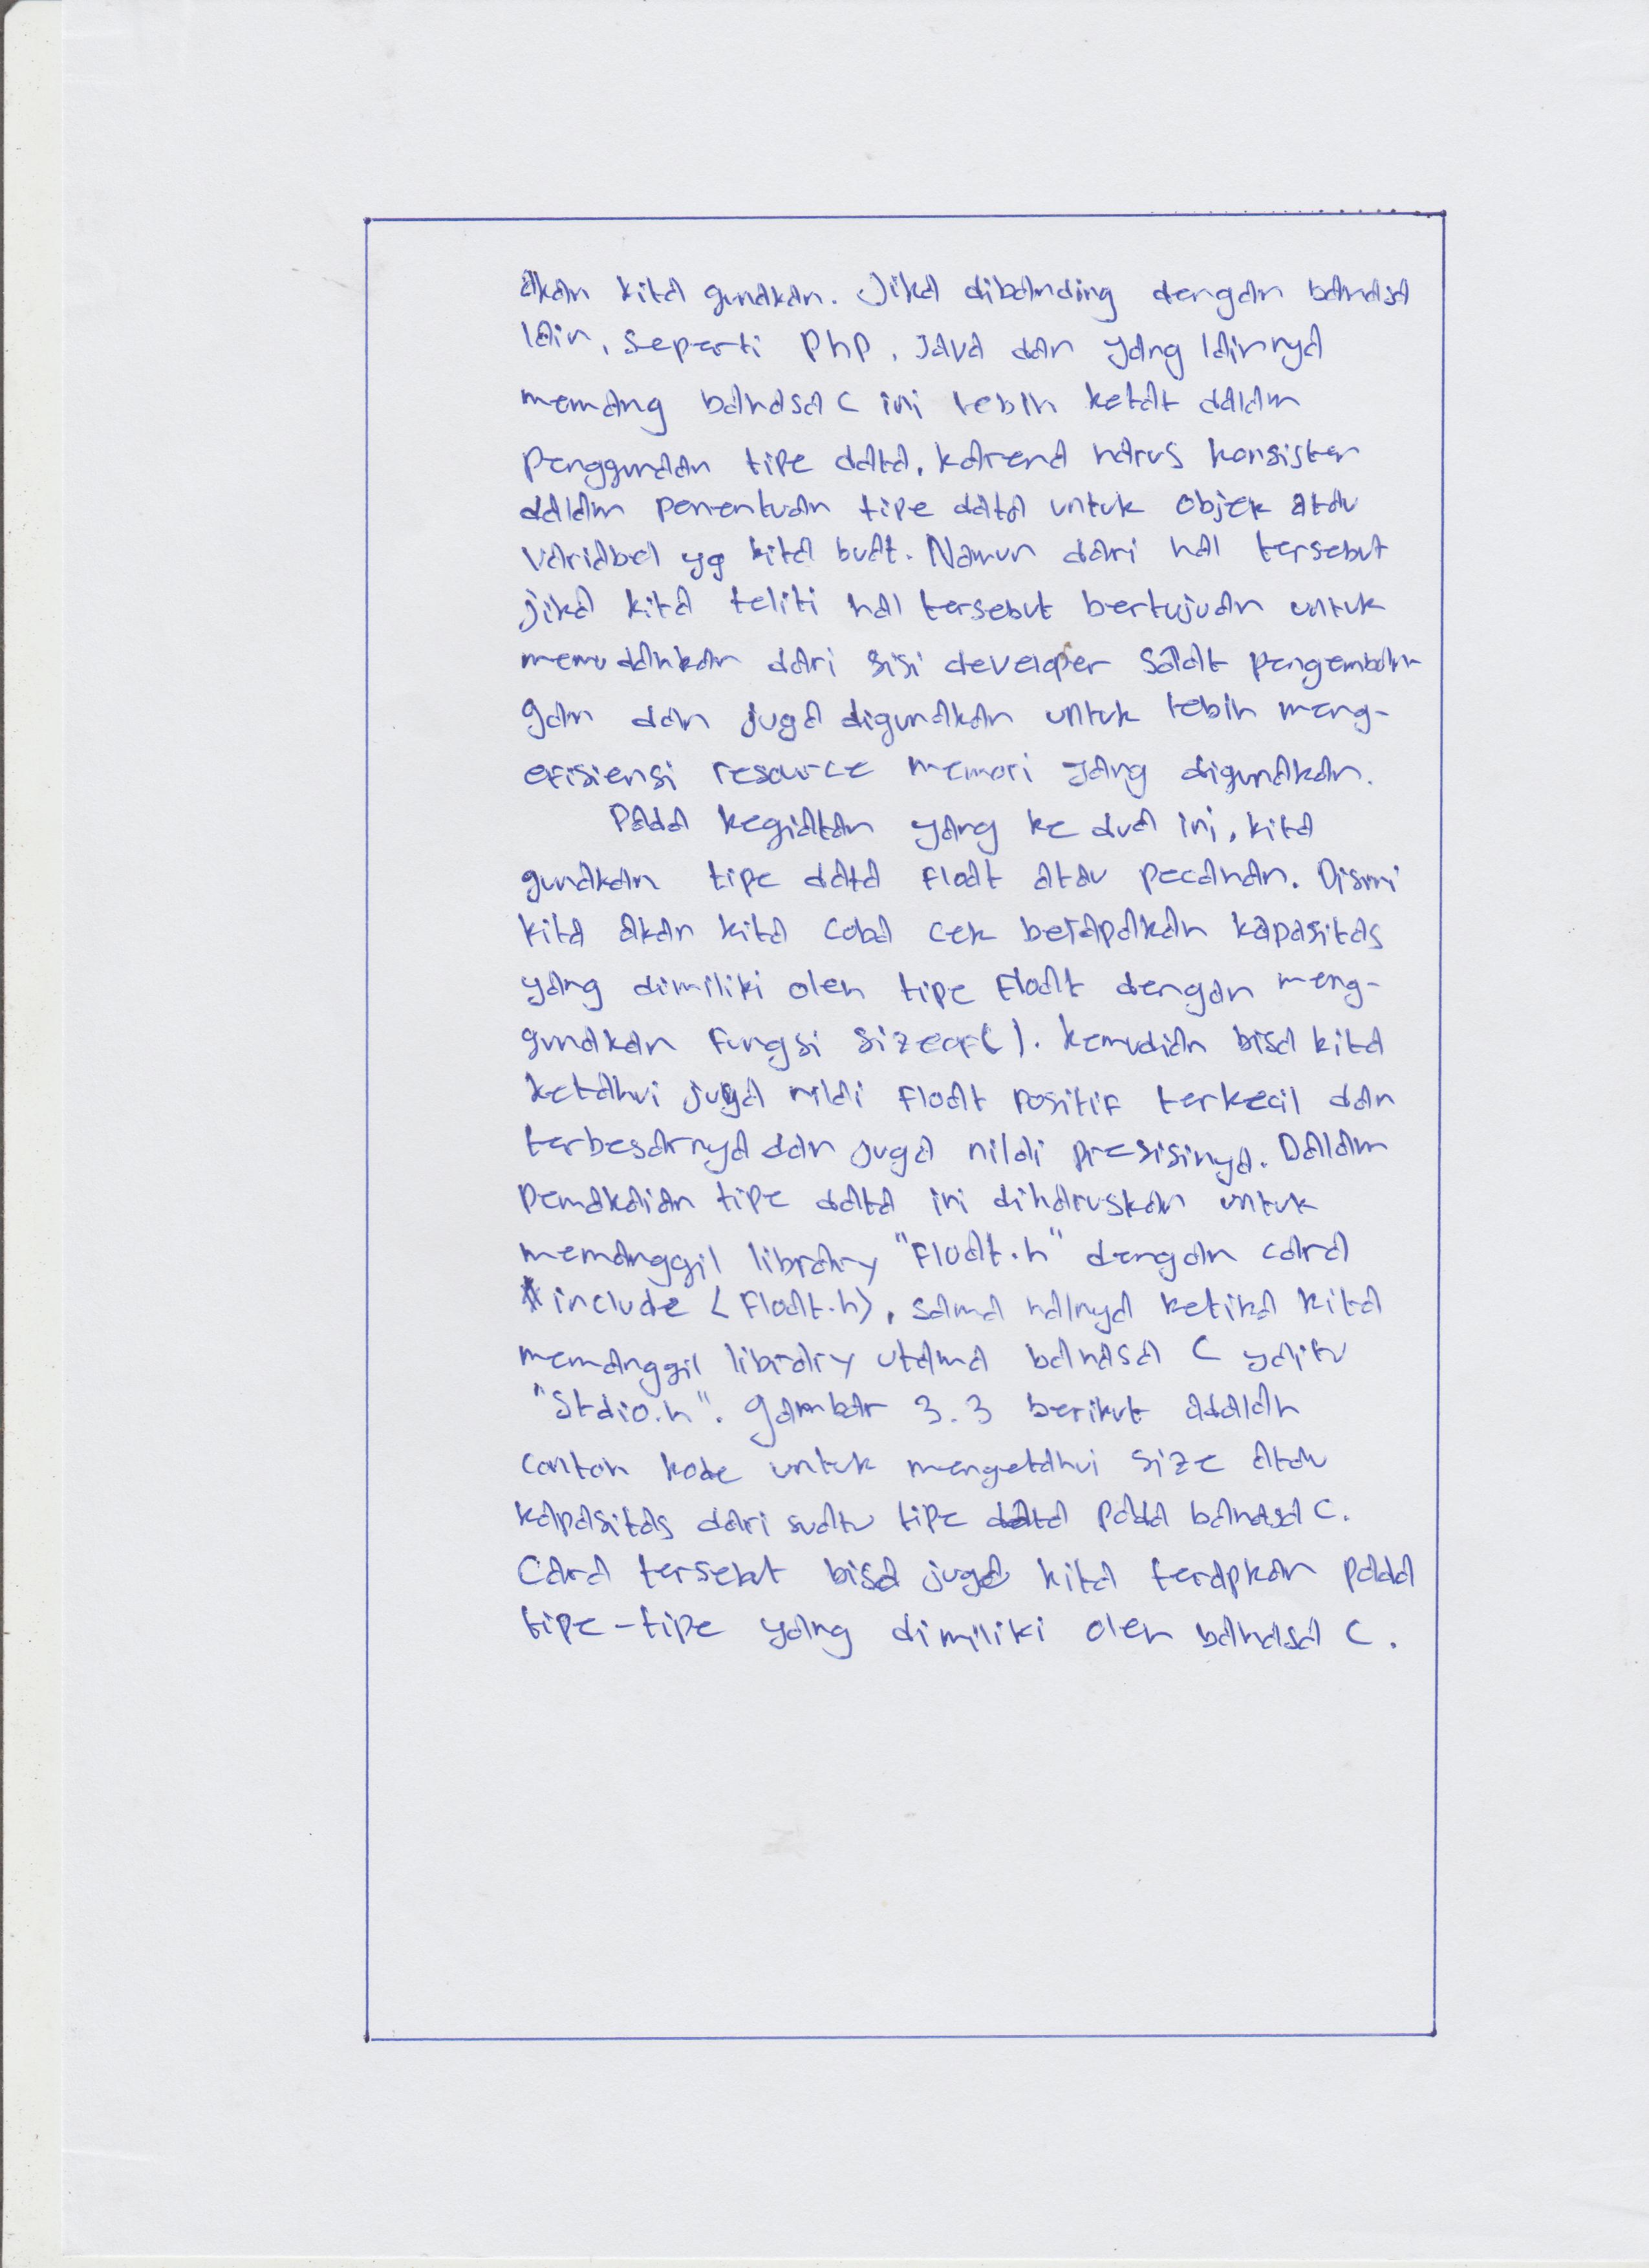 akan kita gunakan. Jika dibanding dengan bahasa
lain, seperti PHP, Java dan yang lainnya
memang bahasa C ini lebih ketat dalam
penggunaan tipe data, karena harus konsisten
dalam penentuan tipe data untuk objek atau
variabel yg kita buat. Namun dari hal tersebut
jika kita teliti hal tersebut bertujuan untuk
memudahkan dari sisi developer saat pengemban-
gan dan juga digunakan untuk lebih meng-
efisiensi resource memori yang digunakan.
Pada kegiatan yang ke dua ini, kita
gunakan tipe data float atau pecahan. Disini
kita akan kita coba cek berapakah kapasitas
yang dimiliki oleh tipe float dengan meng-
gunakan fungsi sizeof(). Kemudian bisa kita
ketahui juga nilai float positif terkecil dan
terbesarnya dan juga nilai presisinya. Dalam
pemakaian tipe data ini diharuskan untuk
memanggil library "float.h" dengan cara
#include <float.h>, sama halnya ketika kita
memanggil library utama bahasa C yaitu
"stdio.h". Gambar 3.3 berikut adalah
contoh kode untuk mengetahui size atau
kapasitas dari suatu tipe data pada bahasa C.
Cara tersebut bisa juga kita terapkan pada
tipe-tipe yang dimiliki oleh bahasa C.